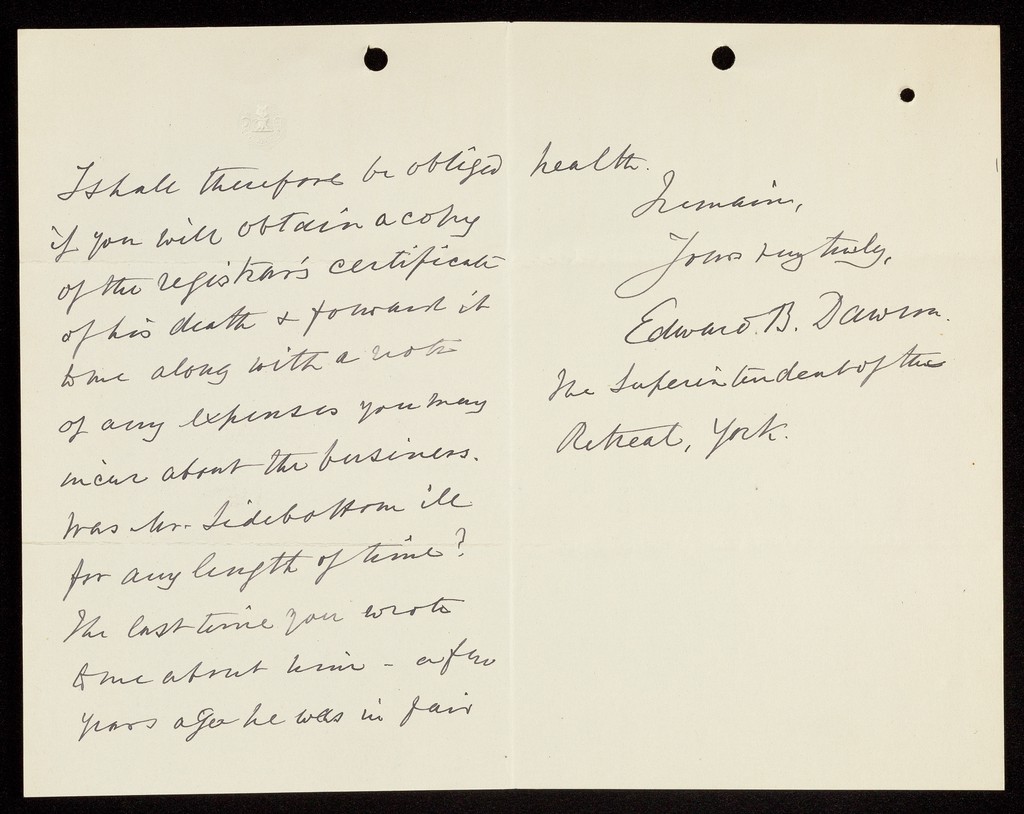 I shall therefore be obliged
if you will obtain a copy
of the registrar's certificate
of his death & forward it
to me along with a note
of any expenses you may
incur about the business.
Was Mr. Sidebottom ill
for any length of time?
The last time you wrote
to me about him - a few
years ago he was in fair
health.
I remain,
Yours very truly,
Edward. B. Dawson.
The Superintendent of the
Retreat, York.